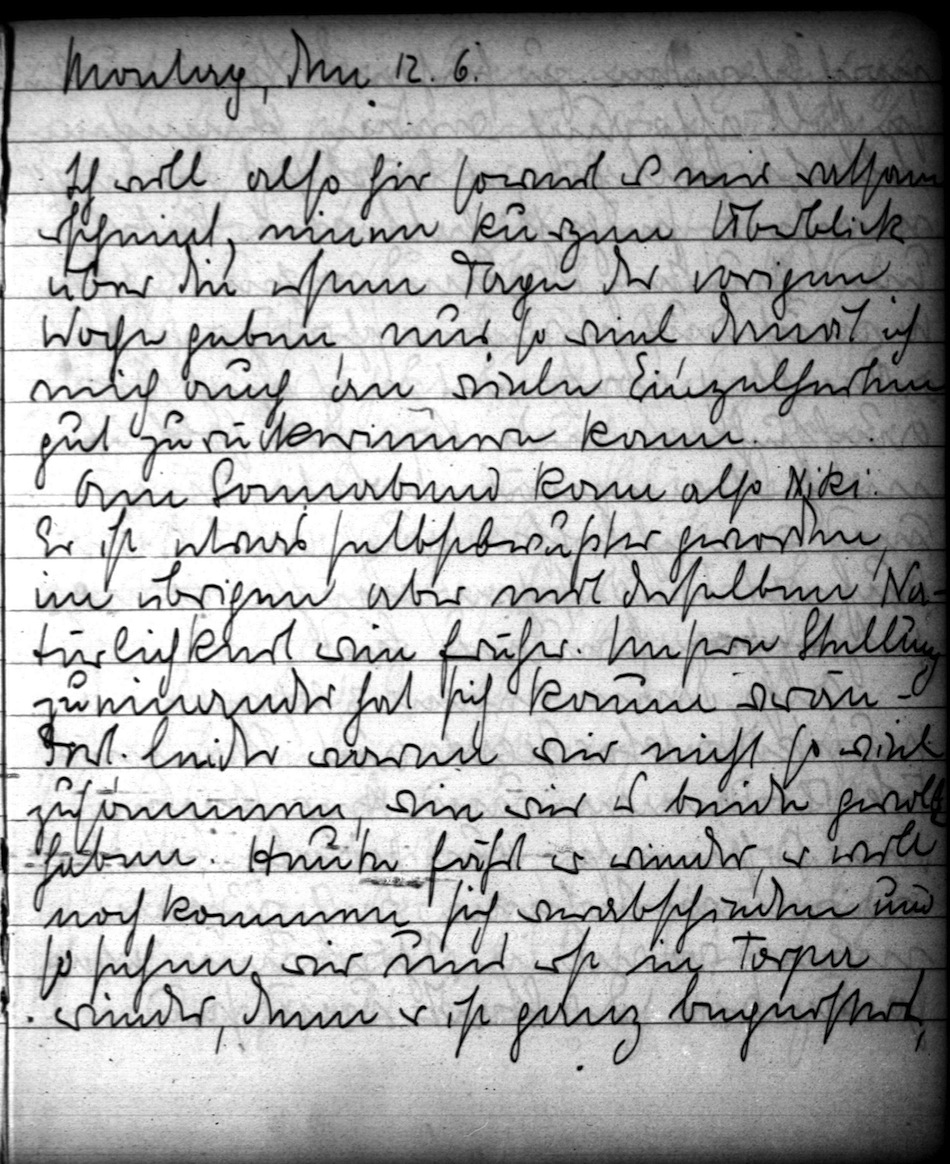 Montag, den 12. 6.
Ich will also hier soweit es mir ratsam
erscheint, einen kurzen Überblick
über die ersten Tage der vorigen
Woche geben nur so viel damit ich
mich auch an viele Einzelheiten
gut zurückerinnern kann.
Am Sonnabend kam also Niki.
Er ist etwas selbstbewußter geworden,
im übrigen aber mit derselben Na-
türlichkeit wie früher. Unsere Stellung
zueinander hat sich kaum verän-
dert. Leider waren wir nicht so viel
zusammen, wie wir es beide gewollt
haben. Heute fährt er wieder, er will
noch kommen sich verabschieden und
so sehen wir uns erst in
wieder, denn er ist ganz begeistert,